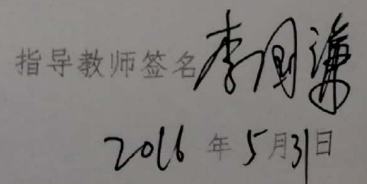 指导教师签名 李国谦
2016 年 5 月 31 日